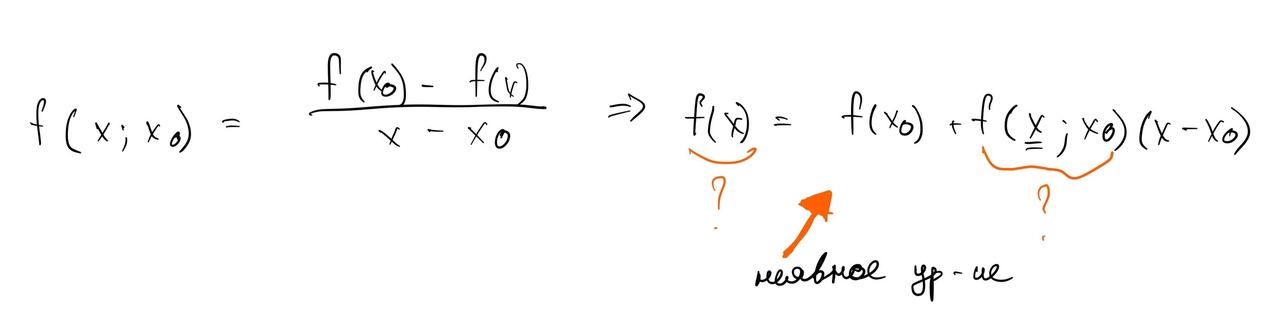 f(x; x₀) = (f(x₀) - f(x))/(x - x₀) ⇒ f(x) = f(x₀) + f(x; x₀)(x - x₀)
? ?
неявное ур-ие